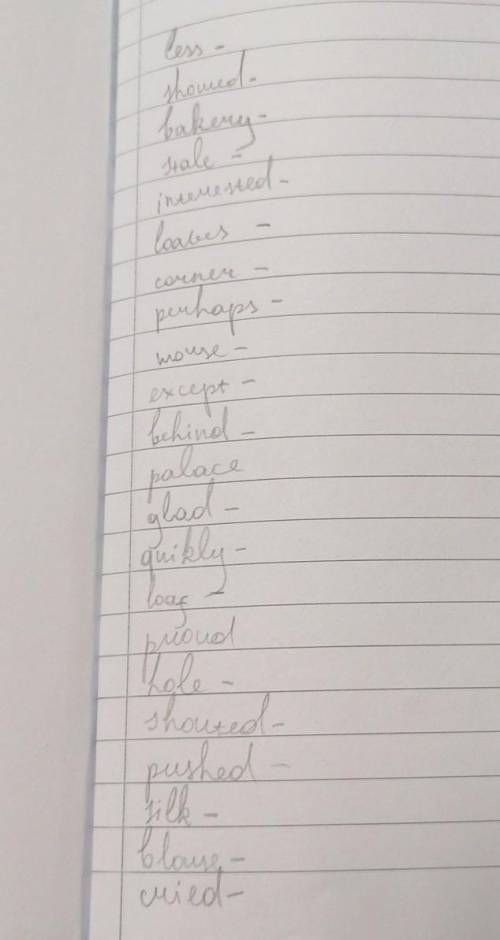 less -
showed -
bakery -
stale -
interessted -
loaves -
corner -
perhaps -
mouse -
except -
behind -
palace
glad -
quikly -
loaf -
proud
hole -
shouted -
pushed -
silk -
blouse -
cried -